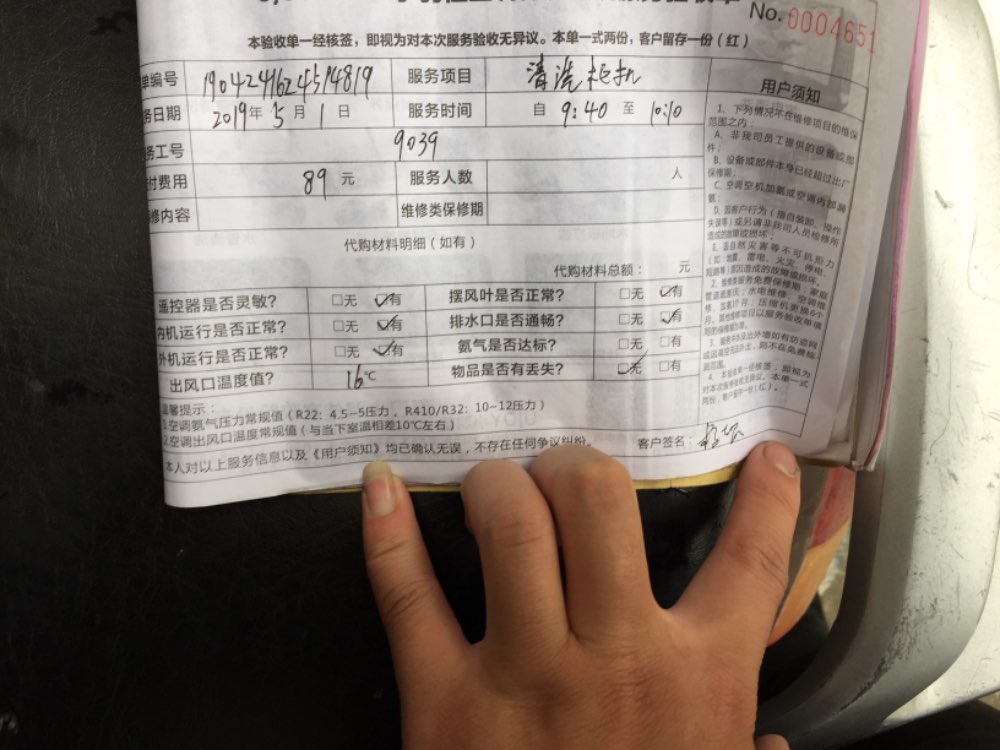 No. 0004651
本验收单一经核签，即视为对本次服务验收无异议。本单一式两份，客户留存一份（红）
单编号 1904241624514819 服务项目 清洗柜机
务日期 2019年5月1日 服务时间 自 9:40 至 10:10
务工号 9039
付费用 89 元 服务人数 人
修内容 维修类保修期
代购材料明细（如有）
代购材料总额： 元
遥控器是否灵敏？ □无 ☑有 摆风叶是否正常？ □无 ☑有
内机运行是否正常？ □无 ☑有 排水口是否通畅？ □无 ☑有
外机运行是否正常？ □无 ☑有 氨气是否达标？ □无 □有
出风口温度值？ 16℃ 物品是否有丢失？ ☑无 □有
温馨提示：
1.空调氨气压力常规值（R22：4.5~5压力，R410/R32：10~12压力）
2.空调出风口温度常规值（与当下室温相差10℃左右）
本人对以上服务信息以及《用户须知》均已确认无误，不存在任何争议纠纷。 客户签名：
用户须知
1、下列情况不在维修项目的维保
范围之内：
A、非我司员工提供的设备或部
件；
B、设备或部件本身已经超过出厂
保修期；
C、空调空机加氨或空调内部漏
氨；
D、因客户行为（擅自装卸、操作
失误等）或另请非我司人员检修所
造成的故障或损坏；
E、因自然灾害等不可抗形力
（如:地震、雷电、火灾、停电、
短路等）原因造成的故障或损坏。
4、本验收单一经核签，即视为
对本次服务验收无异议。本单一式
两份，客户留存一份（红）。